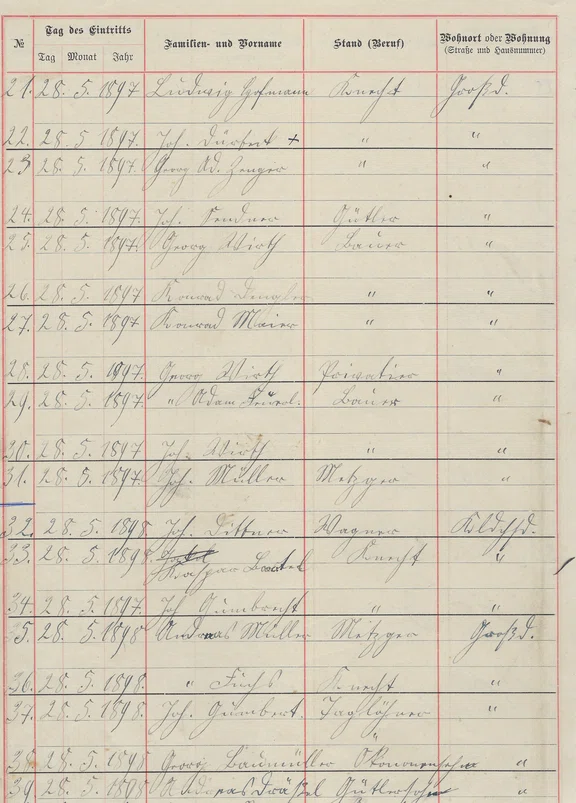 № Tag des Eintritts Familien- und Vorname Stand (Beruf) Wohnort oder Wohnung
Tag Monat Jahr (Straße und Hausnummer)
21. 28. 5. 1897 Ludwig Hofmann Knecht Großd.
22. 28. 5 1897. Joh. + " "
23 28. 5. 1897. Georg Ad. Zenger " "
24. 28. 5. 1897 Joh. Gütler "
25. 28. 5. 1897. Georg Wirth Bauer "
26. 28. 5. 1897 Konrad " "
27. 28. 5. 1897 Konrad Maier " "
28. 28. 5. 1997. Georg Wirth Privatier "
29. 28. 5. 1897. " Adam Bauer "
30. 28. 5. 1897 Joh. Wirth " "
31. 28. 5. 1897. Joh. Müller Metzger "
32. 28. 5. 1898. Joh. Dittner Wagner
33. 28. 5. 1898. Knecht "
Kaspar Bartel
34. 28. 5. 1897. Joh Gumbrecht " "
35. 28. 5. 1898 Andreas Müller Metzger Großd.
36. 28. 5. 1898. " Fuchs Knecht "
37. 28. 5. 1898. Joh. Gumbert. Taglöhner "
"
38. 28. 5. 1898 Georg Baumüller Ökonomensohn "
39. 28. 5. 1898 Andreas Gütlersohn "